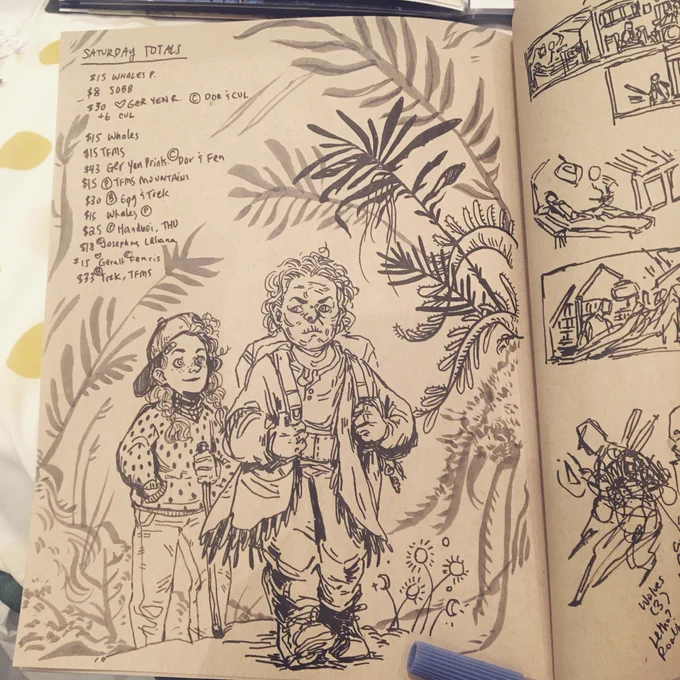 SATURDAY TOTALS
$15 WHALES P.
$8 SOBB
$30 ♡ GER YEN R. © DOR & CUL
+6 CUL
$15 Whales
$15 TFMS
$43 Ger Yen Prints © Dor & Fen
$15 Ⓟ TFMS MOUNTAINS
$30 Egg & Trek
$15 Whales Ⓟ
$25 Ⓟ THU
$18 Josephine
$15 Geralt © Fenris
$33 Trek, TFMS
Wolves
(3)